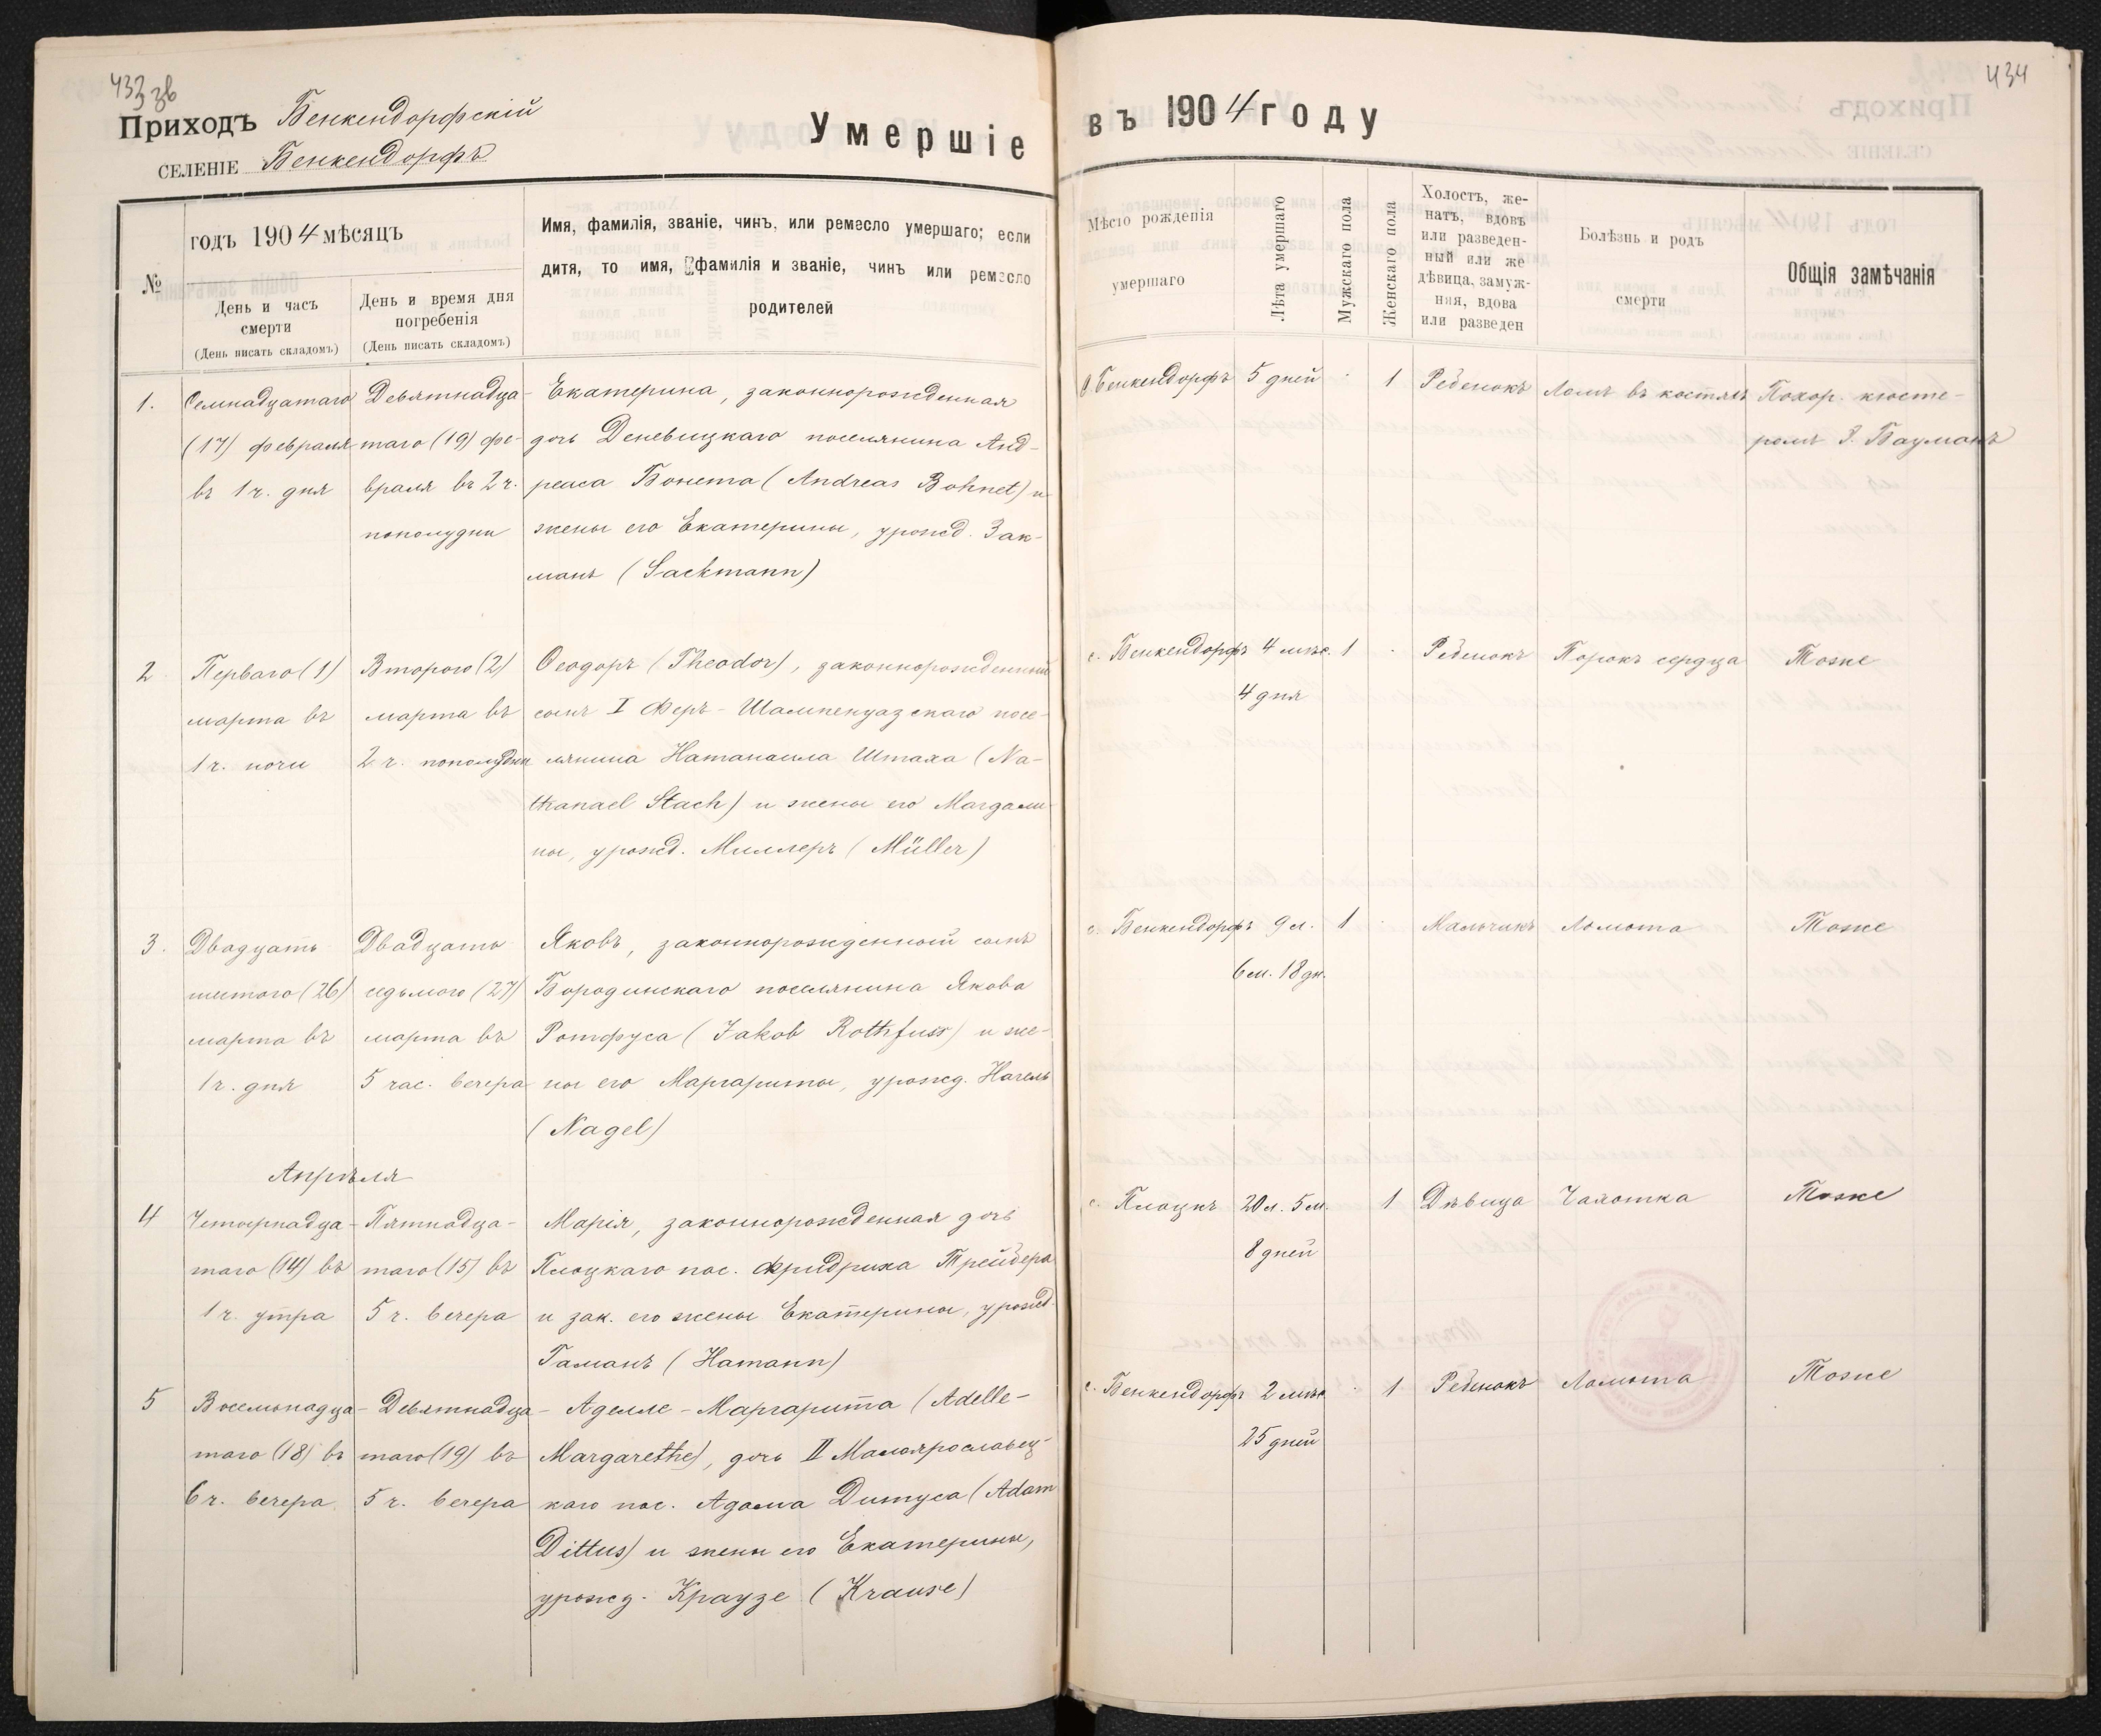 433 зв
Приходъ Бенкендорфскій
СЕЛЕНІЕ Бенкендорфъ
Умершіе
№
годъ 1904 мѣсяцъ
День и часъ
смерти
(День писать складомъ)
День и время дня
погребенія
(День писать складомъ)
Имя, фамилія, званіе, чинъ, или ремесло умершаго; если
дитя, то имя, фамилія и званіе, чинъ или ремесло
родителей
1.
Семнадцатаго
(17) февраля
въ 1 ч. дня
Девятнадца-
таго (19) фе-
враля въ 2 ч.
пополудни
Екатерина, законнорожденная
дочь Деневицкаго поселянина Анд-
реаса Бонета (Andreas Bohnet) и
жены его Екатерины, урожд. Зак-
манъ (Sackmann)
2
Перваго (1)
марта въ
1 ч. ночи
Второго (2)
марта въ
2 ч. пополудни
Ѳеодоръ (Theodor), законнорожденный
сынъ I Феръ-Шампенуазскаго посе-
лянина Натанаила Штаха (Na-
thanael Stach) и жены его Магдали-
ны, урожд. Миллеръ (Müller)
3.
Двадцать
шестого (26)
марта въ
1 ч. дня
Двадцать
седьмого (27)
марта въ
5 час. вечера
Яковъ, законнорожденный сынъ
Бородинскаго поселянина Якова
Ротфуса (Jakob Rothfuss) и же-
ны его Маргариты, урожд. Нагель
(Nagel)
Апрѣля
4
Четырнадца-
таго (14) въ
1 ч. утра
Пятнадца-
таго (15) въ
5 ч. вечера
Марія, законнорожденная дочь
Плоцкаго пос. Фридриха Трейбера
и зак. его жены Екатерины, урожд.
Гаманъ (Hamann)
5
Восемьнадца-
таго (18) въ
6 ч. вечера
Девятнадца-
таго (19) въ
5 ч. вечера
Аделле-Маргарита (Adelle-
Margarethe), дочь II Малоярославец-
каго пос. Адама Дитуса (Adam
Dittus) и жены его Екатерины,
урожд. Краузе (Krause)
434
въ 1904 году
Мѣсто рожденія
умершаго
Лѣта умершаго
Мужскаго пола
Женскаго пола
Холостъ, же-
натъ, вдовъ
или разведен-
ный или же
дѣвица, замуж-
няя, вдова
или разведен
Болѣзнь и родъ
смерти
Общія замѣчанія
Бенкендорфъ
5 дней
1
Ребенокъ
Ломъ въ костяхъ
Похор. кюсте-
ромъ Бауманъ
с. Бенкендорфъ
4 мѣс.
4 дня
1
Ребенокъ
Порокъ сердца
Тоже
с. Бенкендорфъ
9 л.
6 м. 18 дн.
1
Мальчикъ
Ломота
Тоже
с. Плоцкъ
20 л. 5 м.
8 дней
1
Дѣвица
Чахотка
Тоже
с. Бенкендорфъ
2 мѣс.
25 дней
1
Ребенокъ
Ломота
Тоже